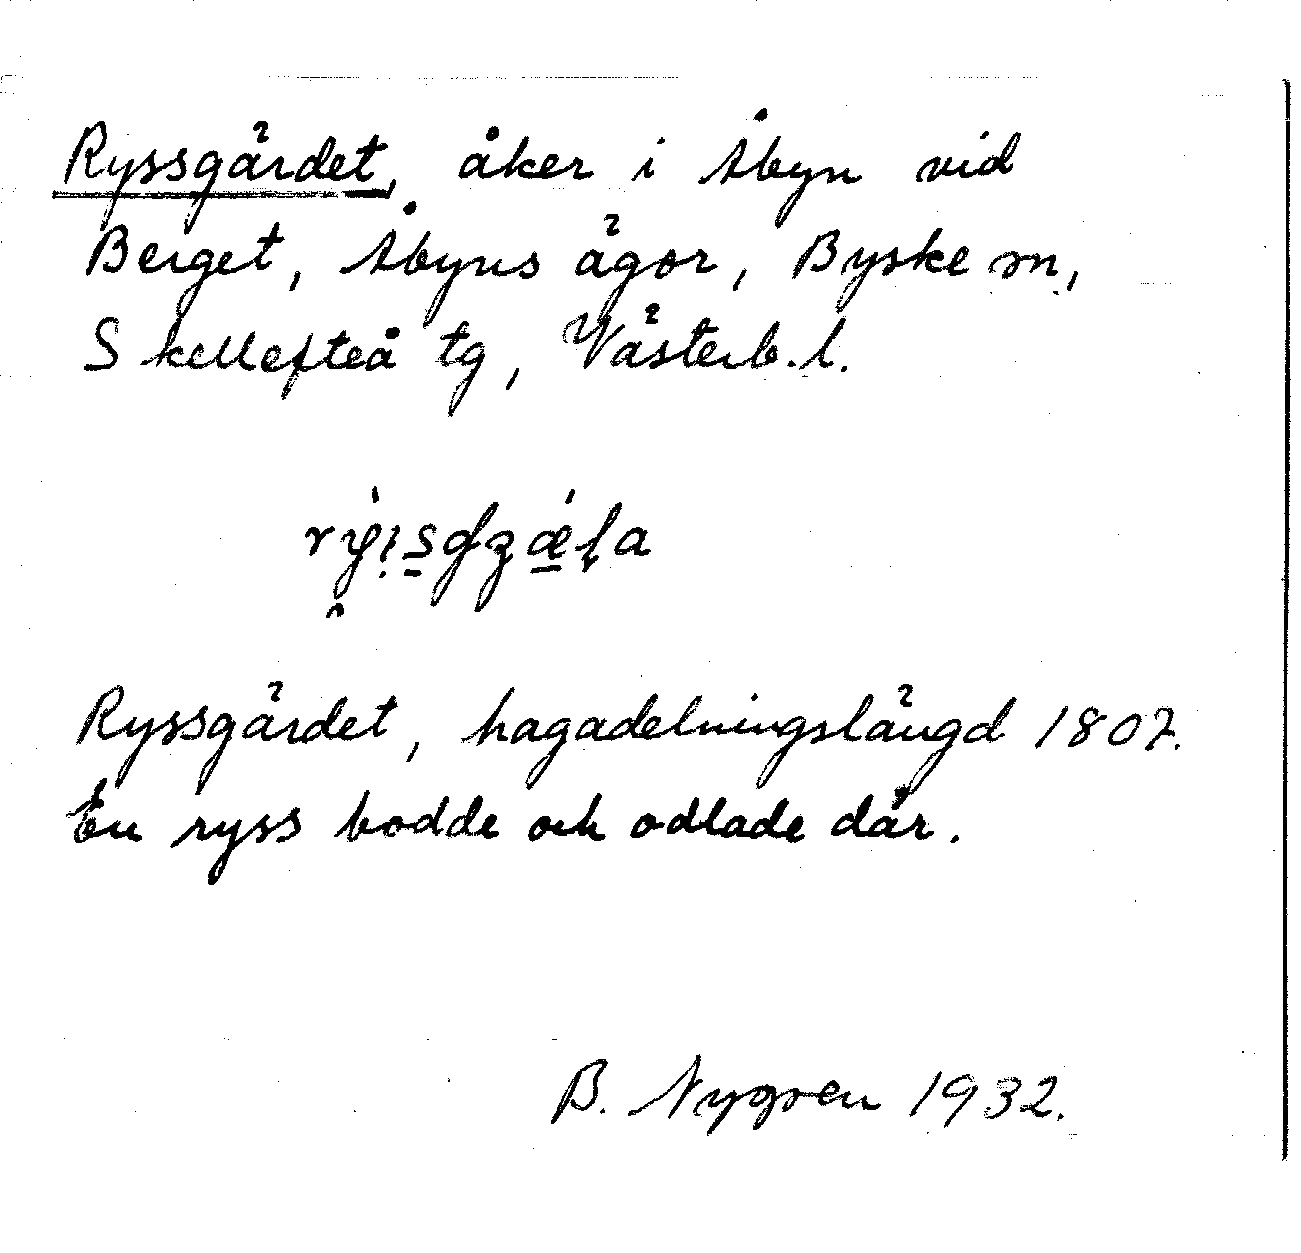 Ryssgärdet, åker i Åbyn vid
Berget, Åbyns ägor, Byske sn,
Skellefteå tg, Västerb. l.
Ryssgärdet, hagadelningslängd 1807.
En ryss bodde och odlade där.
B. Nygren 1932.